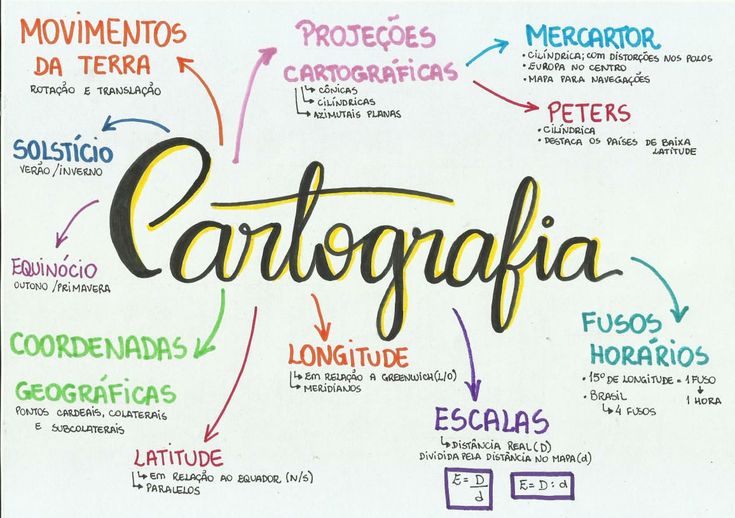 MOVIMENTOS
DA TERRA
ROTAÇÃO E TRANSLAÇÃO
PROJEÇÕES
CARTOGRÁFICAS
↳ CÔNICAS
↳ CILÍNDRICAS
↳ AZIMUTAIS PLANAS
MERCARTOR
• CILÍNDRICA; COM DISTORÇÕES NOS POLOS
• EUROPA NO CENTRO
• MAPA PARA NAVEGAÇÕES
PETERS
• CILÍNDRICA
• DESTACA OS PAÍSES DE BAIXA
LATITUDE
SOLSTÍCIO
VERÃO/INVERNO
Cartografia
EQUINÓCIO
OUTONO/PRIMAVERA
COORDENADAS
GEOGRÁFICAS
PONTOS CARDEAIS, COLATERAIS
E SUBCOLATERAIS
LATITUDE
↳ EM RELAÇÃO AO EQUADOR (N/S)
↳ PARALELOS
LONGITUDE
↳ EM RELAÇÃO A GREENWICH (L/O)
↳ MERIDIANOS
ESCALAS
↳ DISTÂNCIA REAL (D)
DIVIDIDA PELA DISTÂNCIA NO MAPA (d)
E = D/d
E = D : d
FUSOS
HORÁRIOS
• 15º DE LONGITUDE = 1 FUSO
↓
1 HORA
• BRASIL
↳ 4 FUSOS